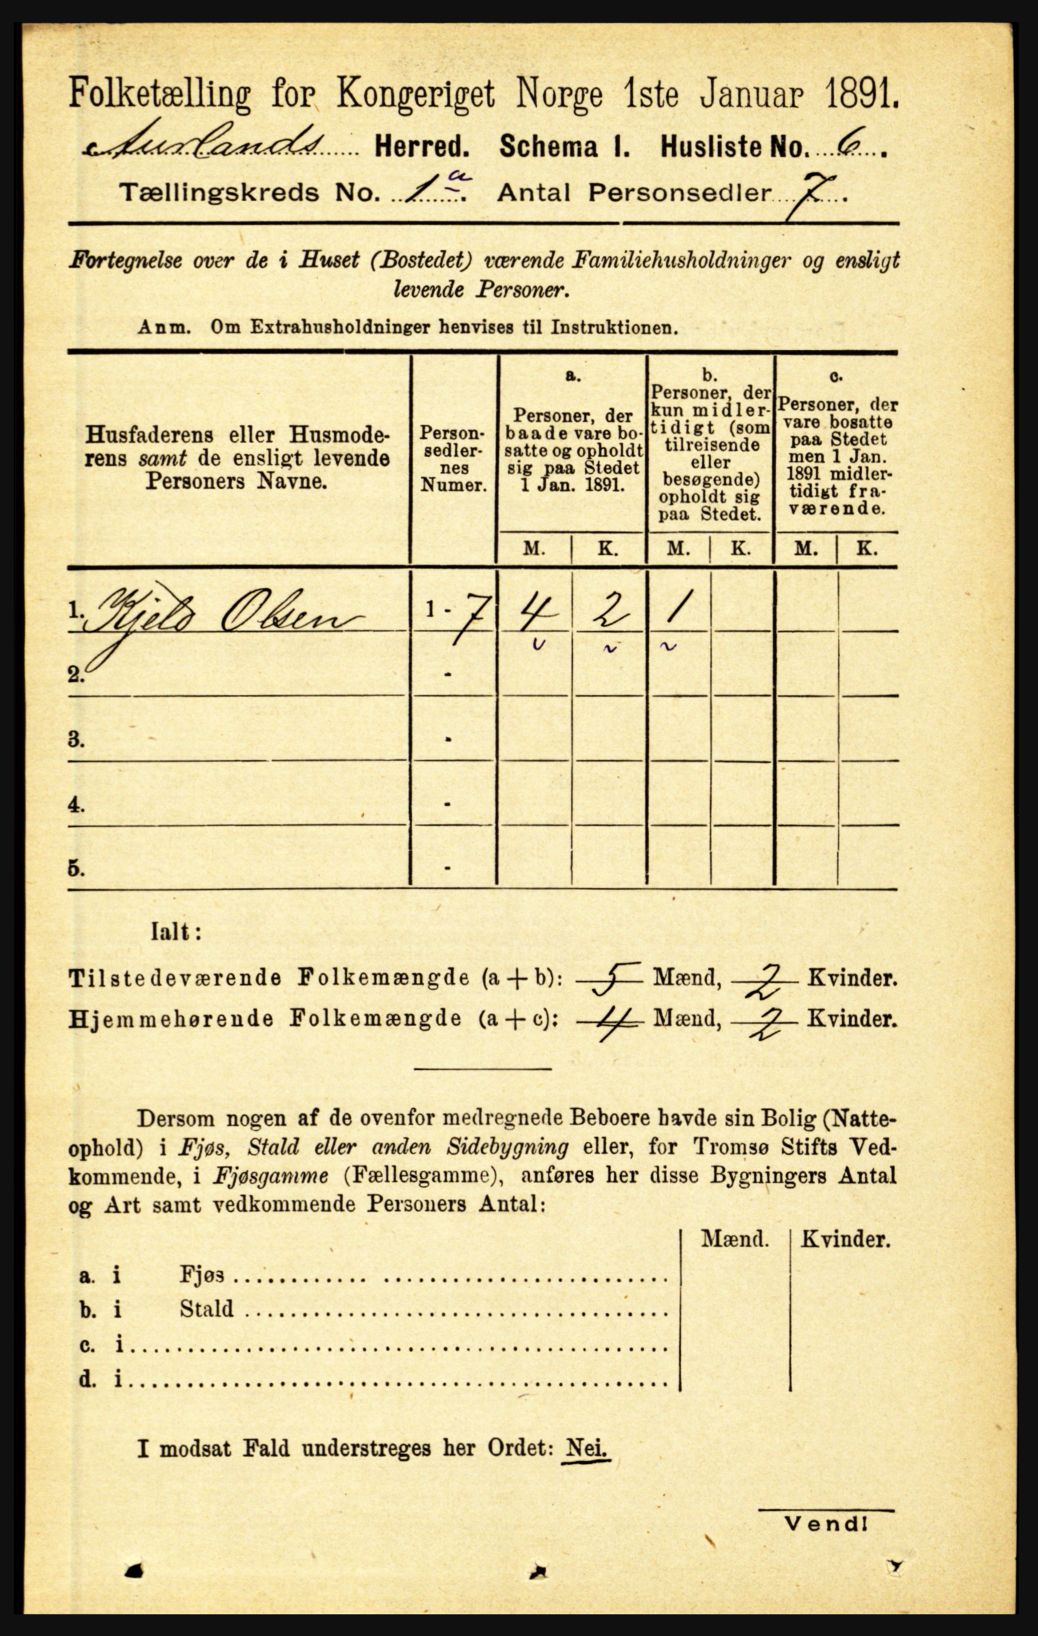 Folketælling for Kongeriget Norge 1ste Januar 1891.
Aurlands Herred. Schema I. Husliste No. 6.
Tællingskreds No. 1a. Antal Personsedler 7.
Fortegnelse over de i Huset (Bostedet) værende Familiehusholdninger og ensligt
levende Personer.
Anm. Om Extrahusholdninger henvises til Instruktionen.
Husfaderens eller Husmode-
rens samt de ensligt levende
Personers Navne.
Person-
sedler-
nes
Numer.
a.
Personer, der
baade vare bo-
satte og opholdt
sig paa Stedet
1 Jan. 1891.
b.
Personer, der
kun midler-
tidigt (som
tilreisende
eller
besøgende)
opholdt sig
paa Stedet.
c.
Personer, der
vare bosatte
paa Stedet
men 1 Jan.
1891 midler-
tidigt fra-
værende.
M. K. M. K. M. K.
1. Kjeld Olsen 1 - 7 4 2 1
2. -
3. -
4. -
5. -
Ialt:
Tilstedeværende Folkemængde (a + b): 5 Mænd, 2 Kvinder.
Hjemmehørende Folkemængde (a + c): 4 Mænd, 2 Kvinder.
Dersom nogen af de ovenfor medregnede Beboere havde sin Bolig (Natte-
ophold) i Fjøs, Stald eller anden Sidebygning eller, for Tromsø Stifts Ved-
kommende, i Fjøsgamme (Fællesgamme), anføres her disse Bygningers Antal
og Art samt vedkommende Personers Antal:
Mænd. Kvinder.
a. i Fjøs
b. i Stald
c. i
d. i
I modsat Fald understreges her Ordet: Nei.
Vend!